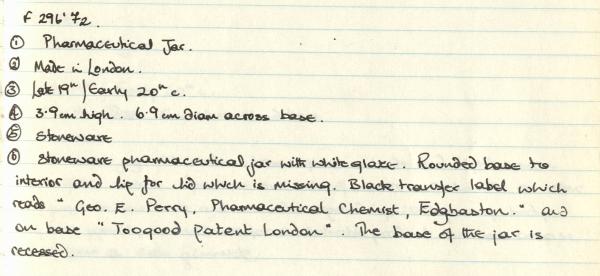 F 296'72.
① Pharmaceutical Jar.
② Made in London.
③ Late 19th / Early 20th c.
④ 3.9cm high. 6.9cm diam across base.
⑤ Stoneware
⑥ Stoneware pharmaceutical jar with white glaze. Rounded base to
interior and lip for lid which is missing. Black transfer label which
reads "Geo. E. Perry, Pharmaceutical Chemist, Edgbaston." and
on base "Toogood Patent London". The base of the jar is
recessed.